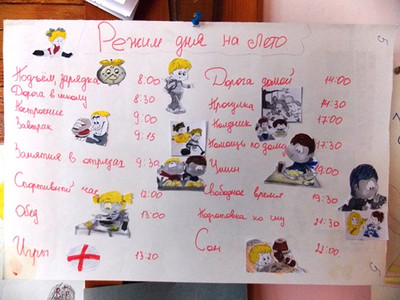 Режим дня на лето
Подъём, зарядка 8:00
Дорога в школу 8:30
Построение 9:00
Завтрак 9:15
Занятия в отрядах 9:30
Спортивный час 12:00
Обед 13:00
Игры 13:20
Дорога домой 14:00
Прогулка 14:30
Полдник 17:00
Помощь по дому 17:30
Ужин 19:00
Свободное время 19:30
Подготовка ко сну 21:30
Сон 22:00